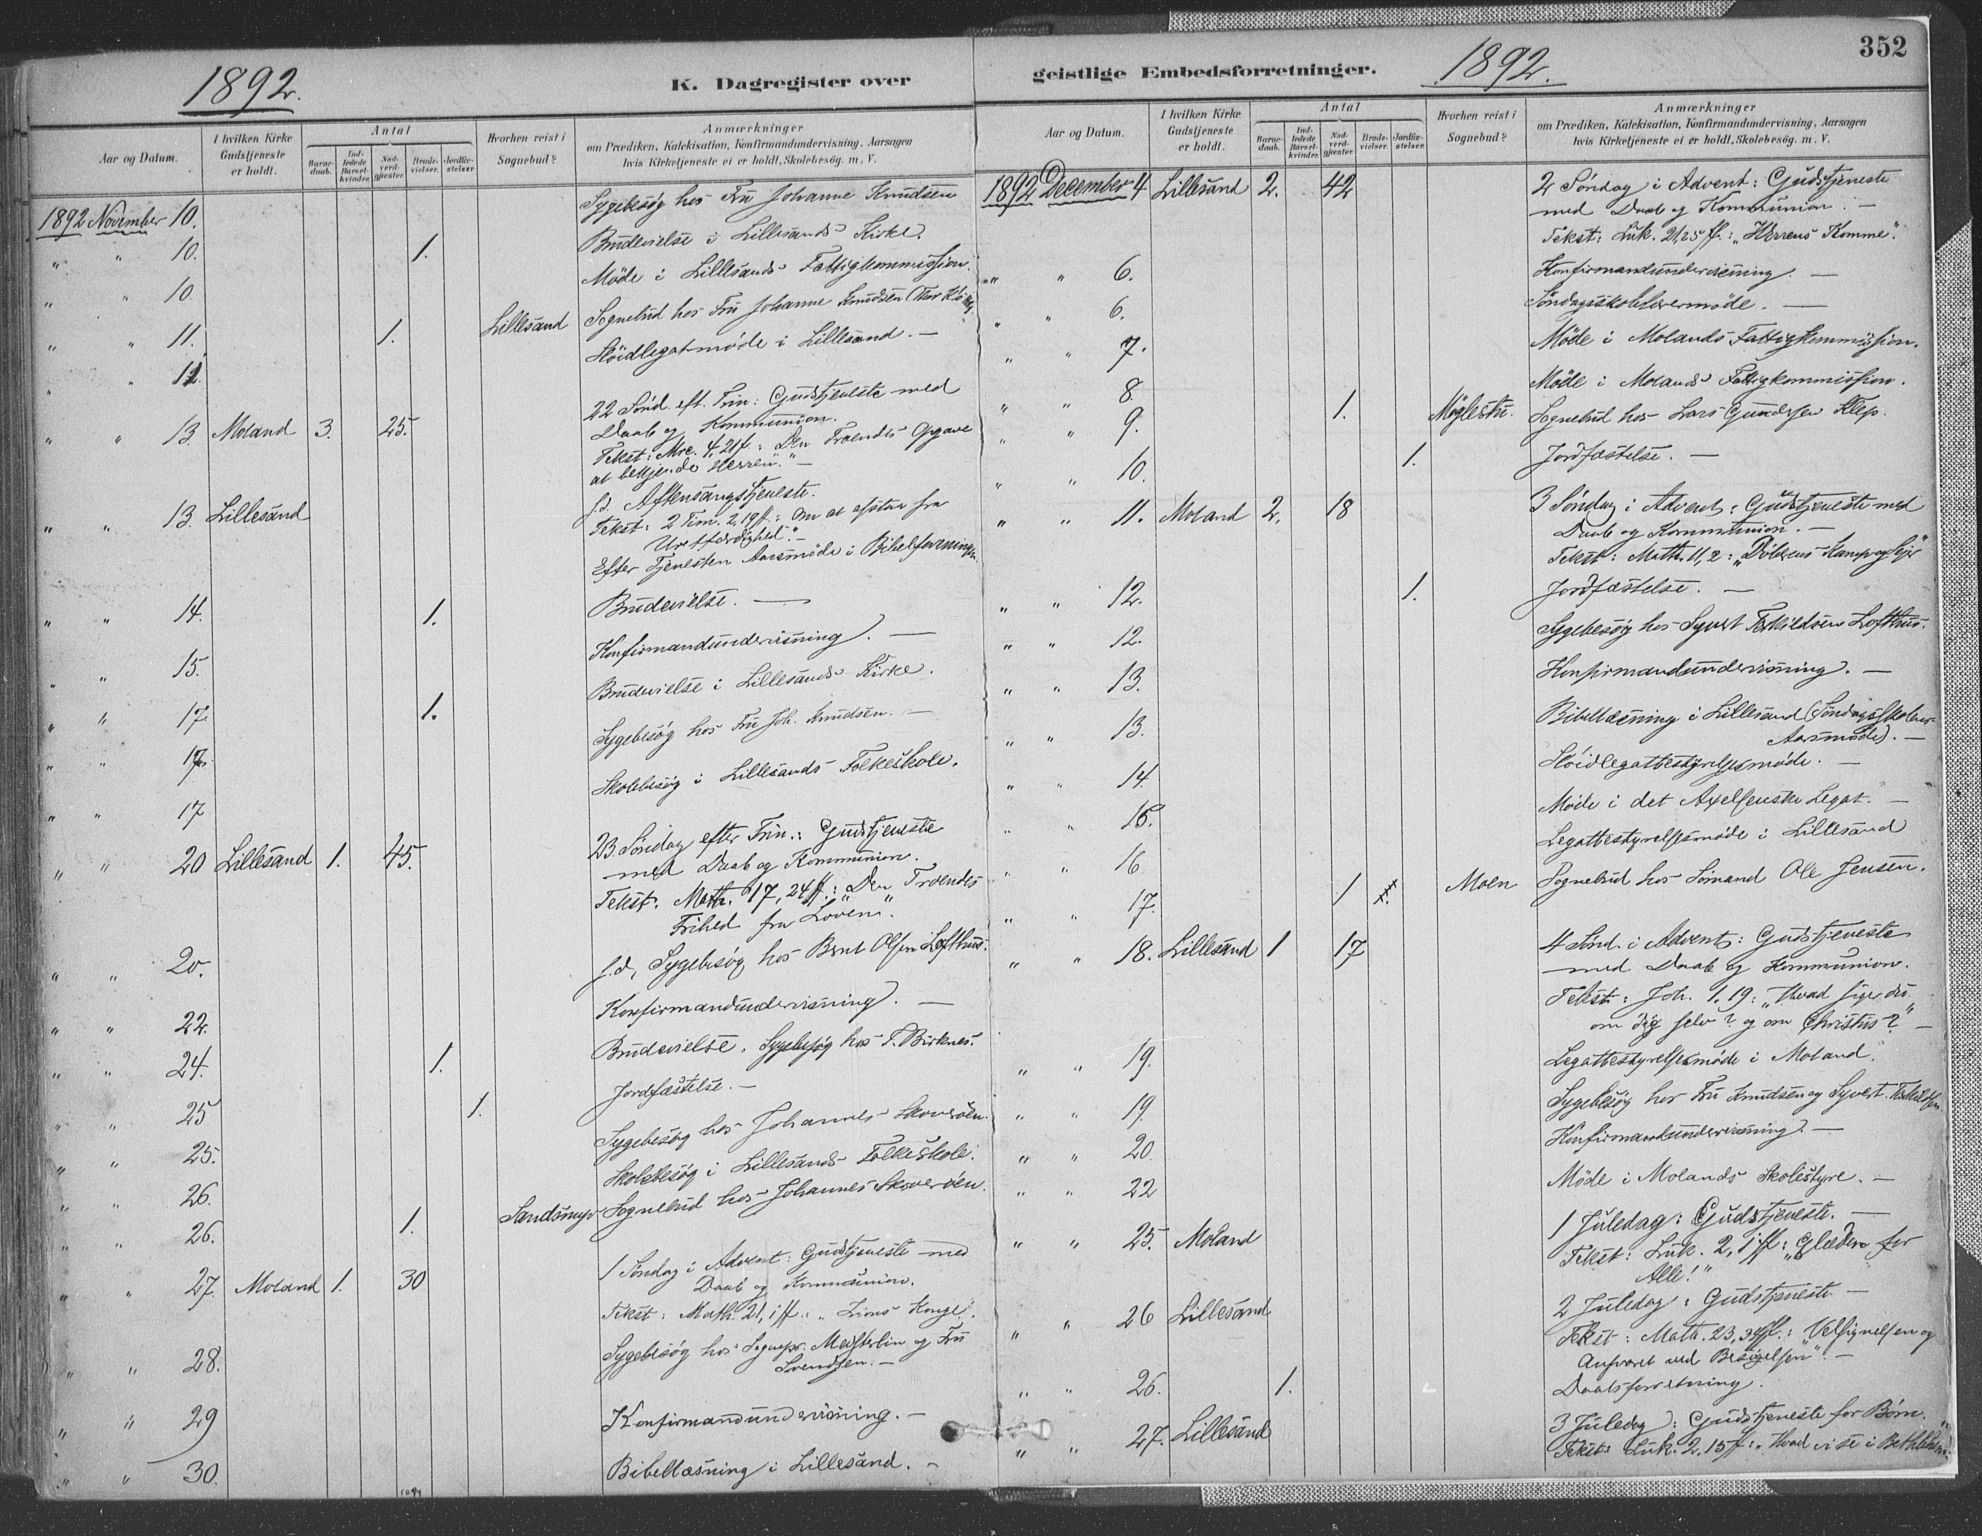 352
1892.
K. Dagregister over
Aar og Datum.
I hvilken Kirke Gudstjeneste er holdt.
Antal
Barnedaab.
Indledede Barselkvinder.
Nadverdgjester.
Brudevielser.
Jordfæstelser.
Hvorhen reist i Sognebud?
Anmærkninger
om Prædiken, Katekisation, Konfirmandundervisning, Aarsagen
hvis Kirketjeneste ei er holdt, Skolebesøg. m. V.
1892 November 10. Sygebesøg hos Fru Johanne Knudsen
" " 10. 1. Brudevielse i Lillesands Kirke.
" " 10 Møde i Lillesands Fattigkommission.
" " 11. 1. Lillesand Sognebud hos Fru Johanne Knudsen
" 12. Sløidlegatmøde i Lillesand. —
" " 13. Moland 3. 25. 22 Sønd. eft. Trin: Gudstjeneste med
Daab og Kommunion.
Tekst: Mrc. 4, 21 f.: Den Troendes Opgave
at bekjende Herren". —
" " 13. Lillesand s.d. Aftensangstjeneste.
Tekst: 2 Tim. 2, 19 ff: Om at afstaa fra
Uretfærdighed". —
Efter Tjenesten Aarsmøde i Bibelforeningen
" " 14. 1. Brudevielse. —
" " 15. Konfirmandundervisning. —
" " 17. 1. Brudevielse i Lillesands Kirke.
" " 17. Sygebesøg hos Fru Joh. Knudsen. —
" " 17 Skolebesøg i Lillesands Folkeskole.
" " 20 Lillesand 1. 45. 23. Søndag efter Trin.: Gudstjeneste
med Daab og Kommunion.
Tekst. Math. 17, 24 ff: "Den Troendes
Frihed fra Loven".
" " 20. s.d. Sygebesøg hos Bent Olsen Lofthus.
" " 22. Konfirmandundervisning. —
" " 24. 1. Brudevielse. Sygebesøg hos T. Birknes.
" " 25 1. Jordfæstelse. —
" " 25. Sygebesøg hos Johannes Skoverøen.
" " 26. Skolebesøg i Lillesands Folkeskole.
" " 26. 1. Sandsmyr Sognebud hos Johannes Skoverøen.
" " 27. Moland 1. 30 1 Søndag i Advent: Gudstjeneste med
Daab og Kommunion.
Tekst: Math. 21, 1 ff: "Zions Konge".
" " 28. Sygebesøg hos Sognepr. Mesterlin og Fru
Svendsen. —
" " 29 Konfirmandundervisning. —
" " 30. Bibellæsning i Lillesand. —
geistlige Embedsforretninger.
1892.
Aar og Datum.
I hvilken Kirke Gudstjeneste er holdt.
Antal
Barnedaab.
Indledede Barselkvinder.
Nadverdgjester.
Brudevielser.
Jordfæstelser.
Hvorhen reist i Sognebud?
Anmærkninger
om Prædiken, Katekisation, Konfirmandundervisning, Aarsagen
hvis Kirketjeneste ei er holdt, Skolebesøg. m. V.
1892 December 4 Lillesand 2. 42 2 Søndag i Advent: Gudstjeneste
med Daab og Kommunion. —
Tekst: Luk. 21, 25 ff.: "Herrens Komme".
" " 6. Konfirmandundervisning. —
" " 6. Søndagsskolelærermøde. —
" " 7. Møde i Molands Fattigkommission.
" " 8. Møde i Molands Fattigkommission.
" " 9. 1. Møglestu. Sognebud hos Lars Gundersen Klep.
" " 10. 1. Jordfæstelse. —
" " 11. Moland 2. 18 3 Søndag i Advent: Gudstjeneste med
Daab og Kommunion. —
Tekst: Math. 11, 2: "Døberens Kamp og Sejr"
" " 12. 1. Jordfæstelse. —
" " 12. Sygebesøg hos Syvert Terkildsen Lofthus.
" " 13. Konfirmandundervisning. —
" " 13. Bibellæsning i Lillesand (Søndagsskolens
Aarsmøde). —
" " 14. Sløidlegatbestyrelsesmøde. —
" " 16. Møde i det Axelsenske Legat. —
" " 16 Legatbestyrelsesmøde i Lillesand
" " 17. 1 Moen Sognebud hos Sømand Ole Jensen.
" " 18. Lillesand 1 17 4 Sønd. i Advent: Gudstjeneste
med Daab og Kommunion.
Tekst: Joh. 1. 19: "Hvad siger du
om dig selv? og om Christus?" —
" " 19. Legatbestyrelsesmøde i Moland.
" " 19. Sygebesøg hos Fru Knudsen og Syvert Terkildsen
" " 20 Konfirmandundervisning. —
" " 22 Møde i Molands Skolestyre. —
" " 25. Moland 1 Juledag: Gudstjeneste. —
Tekst: Luk. 2, 1 ff: "Glæden for
Alle!"
" " 26 Lillesand 2 Juledag: Gudstjeneste —
Tekst: Math. 23, 34 ff.: "Velsignelsen og
Ansvaret ved Besøgelsen". —
" " 26. 1. Daabsforretning.
" " 27. Lillesand 3 Juledag: Gudstjeneste for Børn.
Tekst: Luk. 2. 15 ff: "Hvad vi se i Bethlehem"